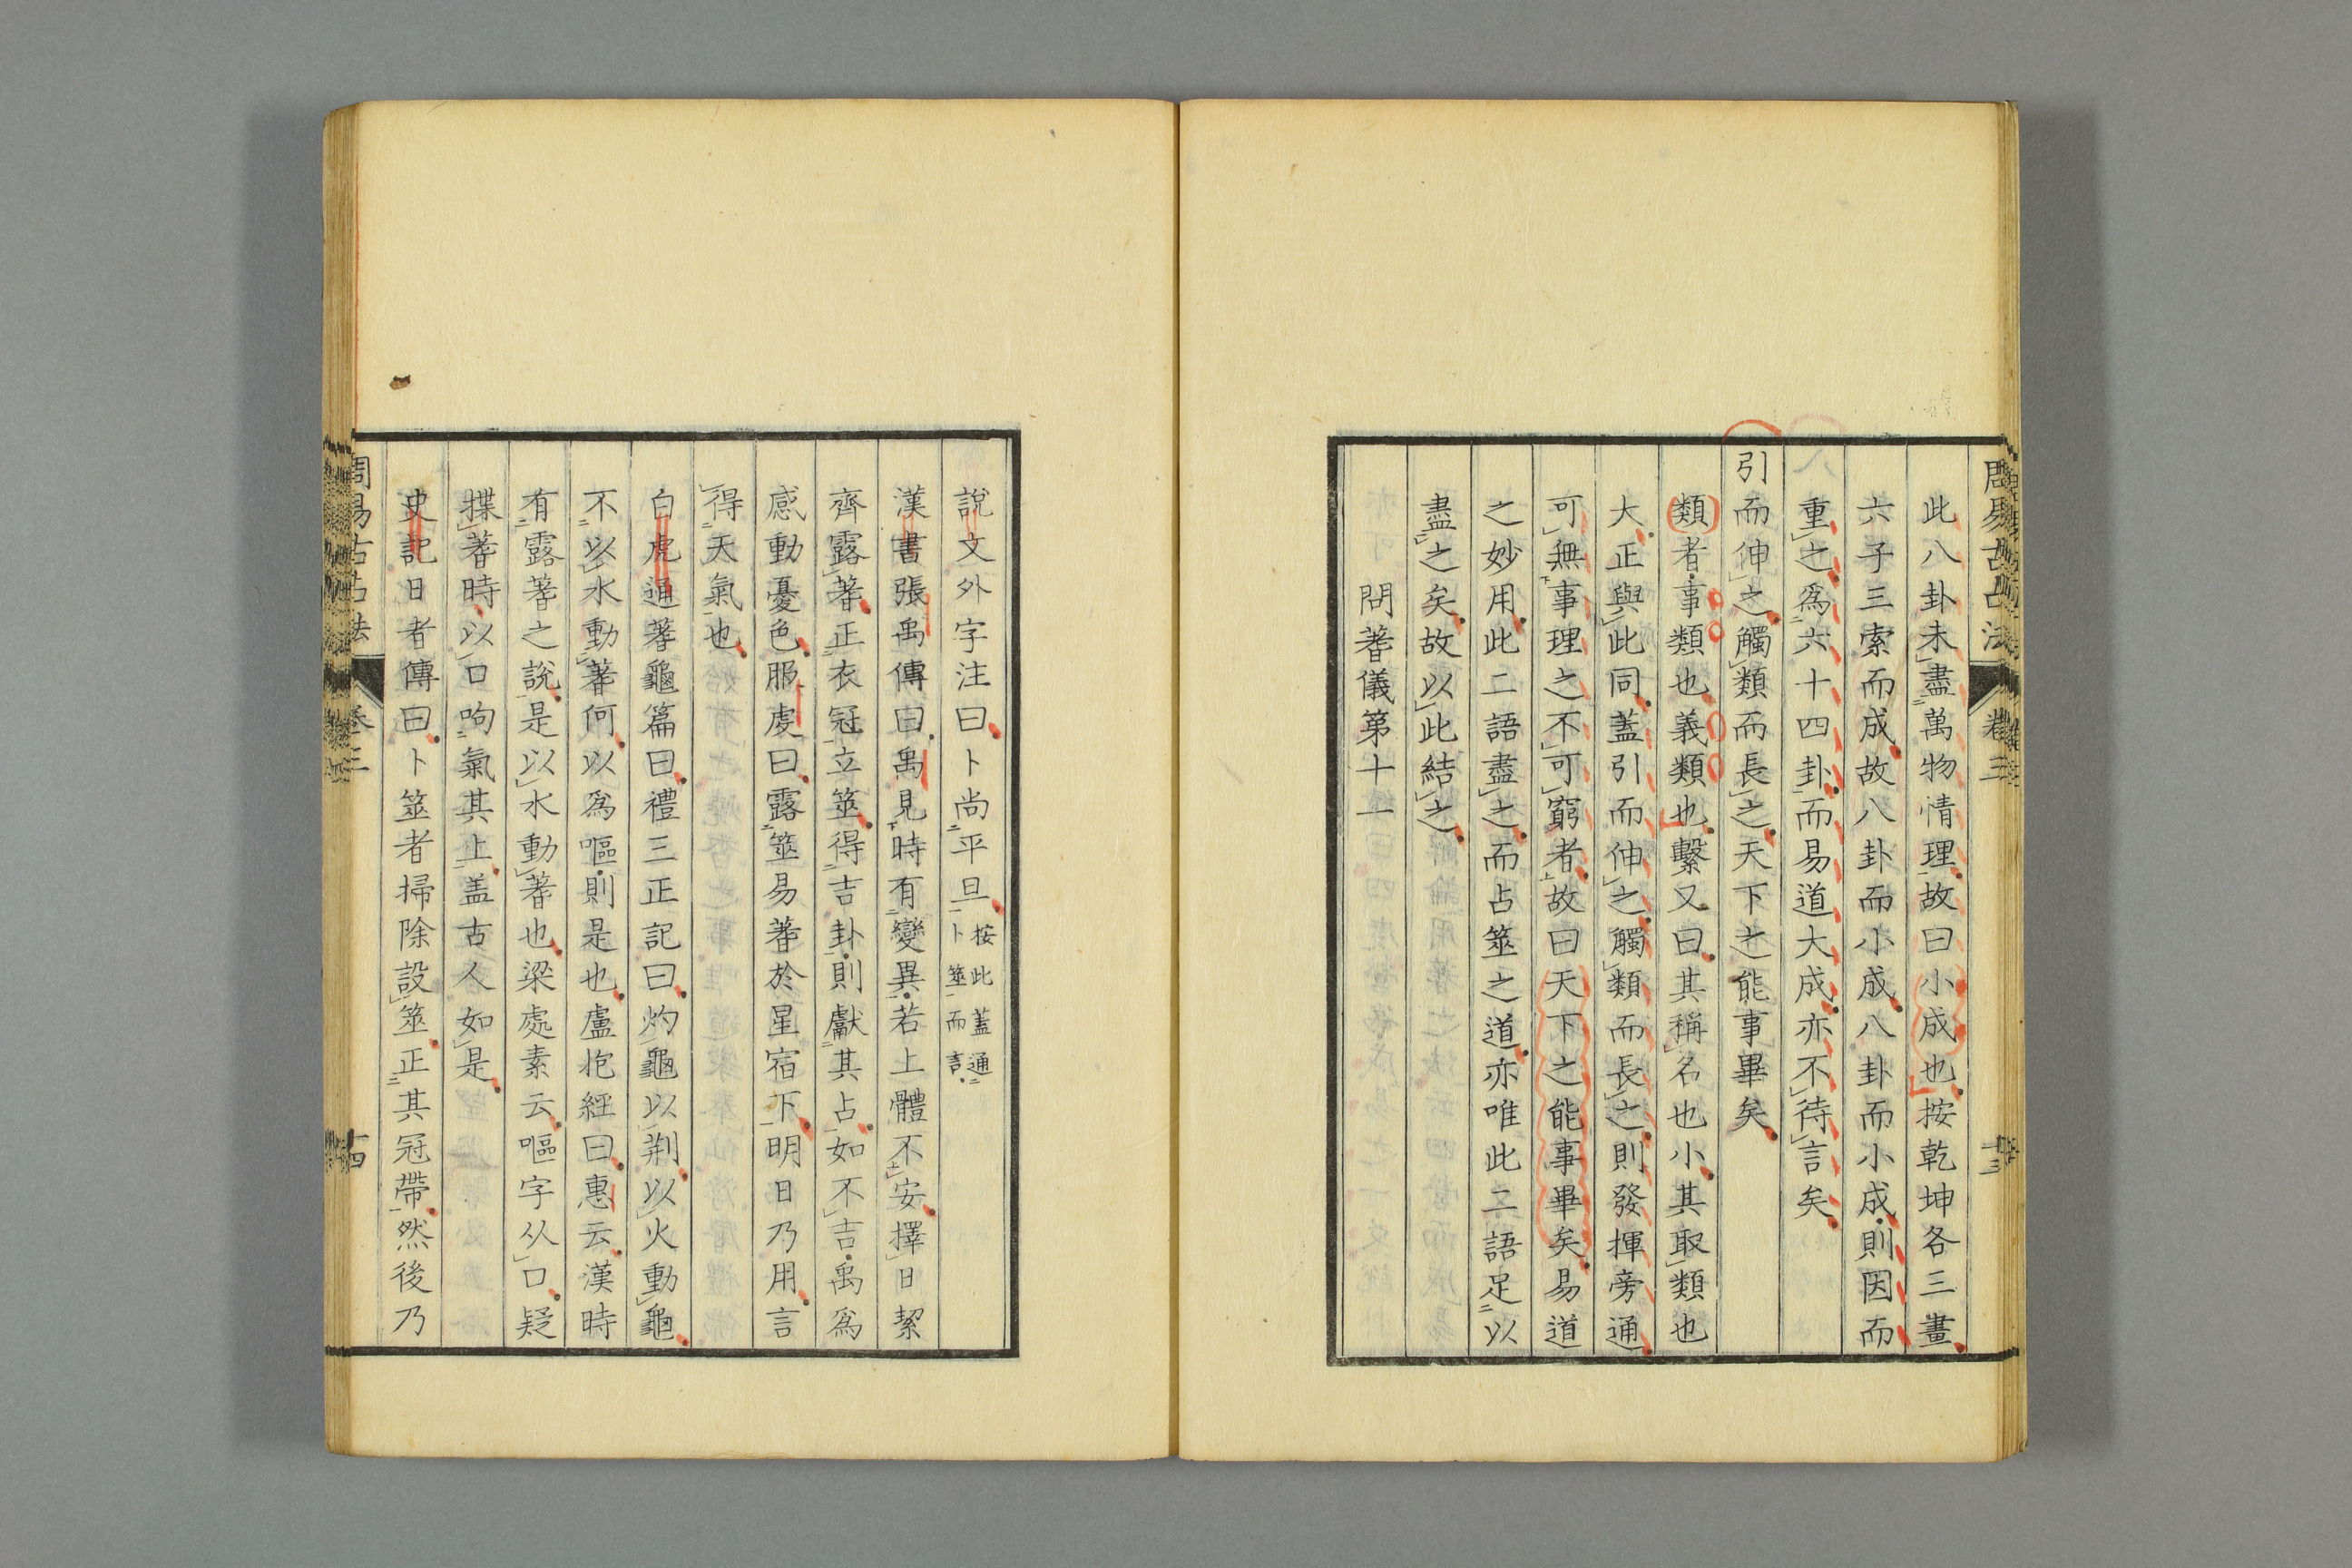 周易古占法 卷三 十三
此八卦未盡萬物情理故曰小成也按乾坤各三畫
六子三索而成故八卦而小成八卦而小成則因而
重之為六十四卦而易道大成亦不待言矣
引而伸之觸類而長之天下之能事畢矣
類者事類也義類也繫又曰其稱名也小其取類也
大正與此同蓋引而伸之觸類而長之則發揮旁通
可無事理之不可窮者故曰天下之能事畢矣易道
之妙用此二語盡之而占筮之道亦唯此二語足以
盡之矣故以此結之
問蓍儀第十一
說文外字注曰卜尚平旦按此蓋通卜筮而言
漢書張禹傳曰禹見時有變異若上體不安擇日絜
齊露蓍正衣冠立筮得吉卦則獻其占如不吉禹為
感動憂色服虔曰露筮易蓍於星宿下明日乃用言
得天氣也
白虎通蓍龜篇曰禮三正記曰灼龜以荆以火動龜
不以水動蓍何以為嘔則是也盧抱經曰惠云漢時
有露蓍之說是以水動蓍也梁處素云嘔字从口疑
揲蓍時以口呴氣其上盖古人如是
史記日者傳曰卜筮者掃除設筮正其冠帶然後乃
周易古占法 卷三 十四